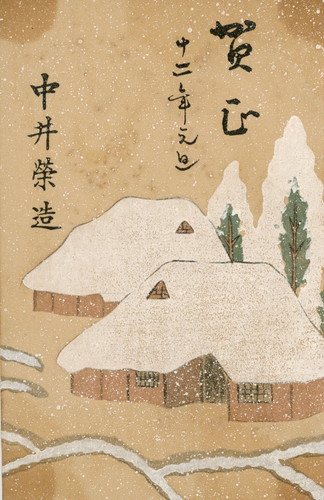 賀正
十二年元旦
中井榮造